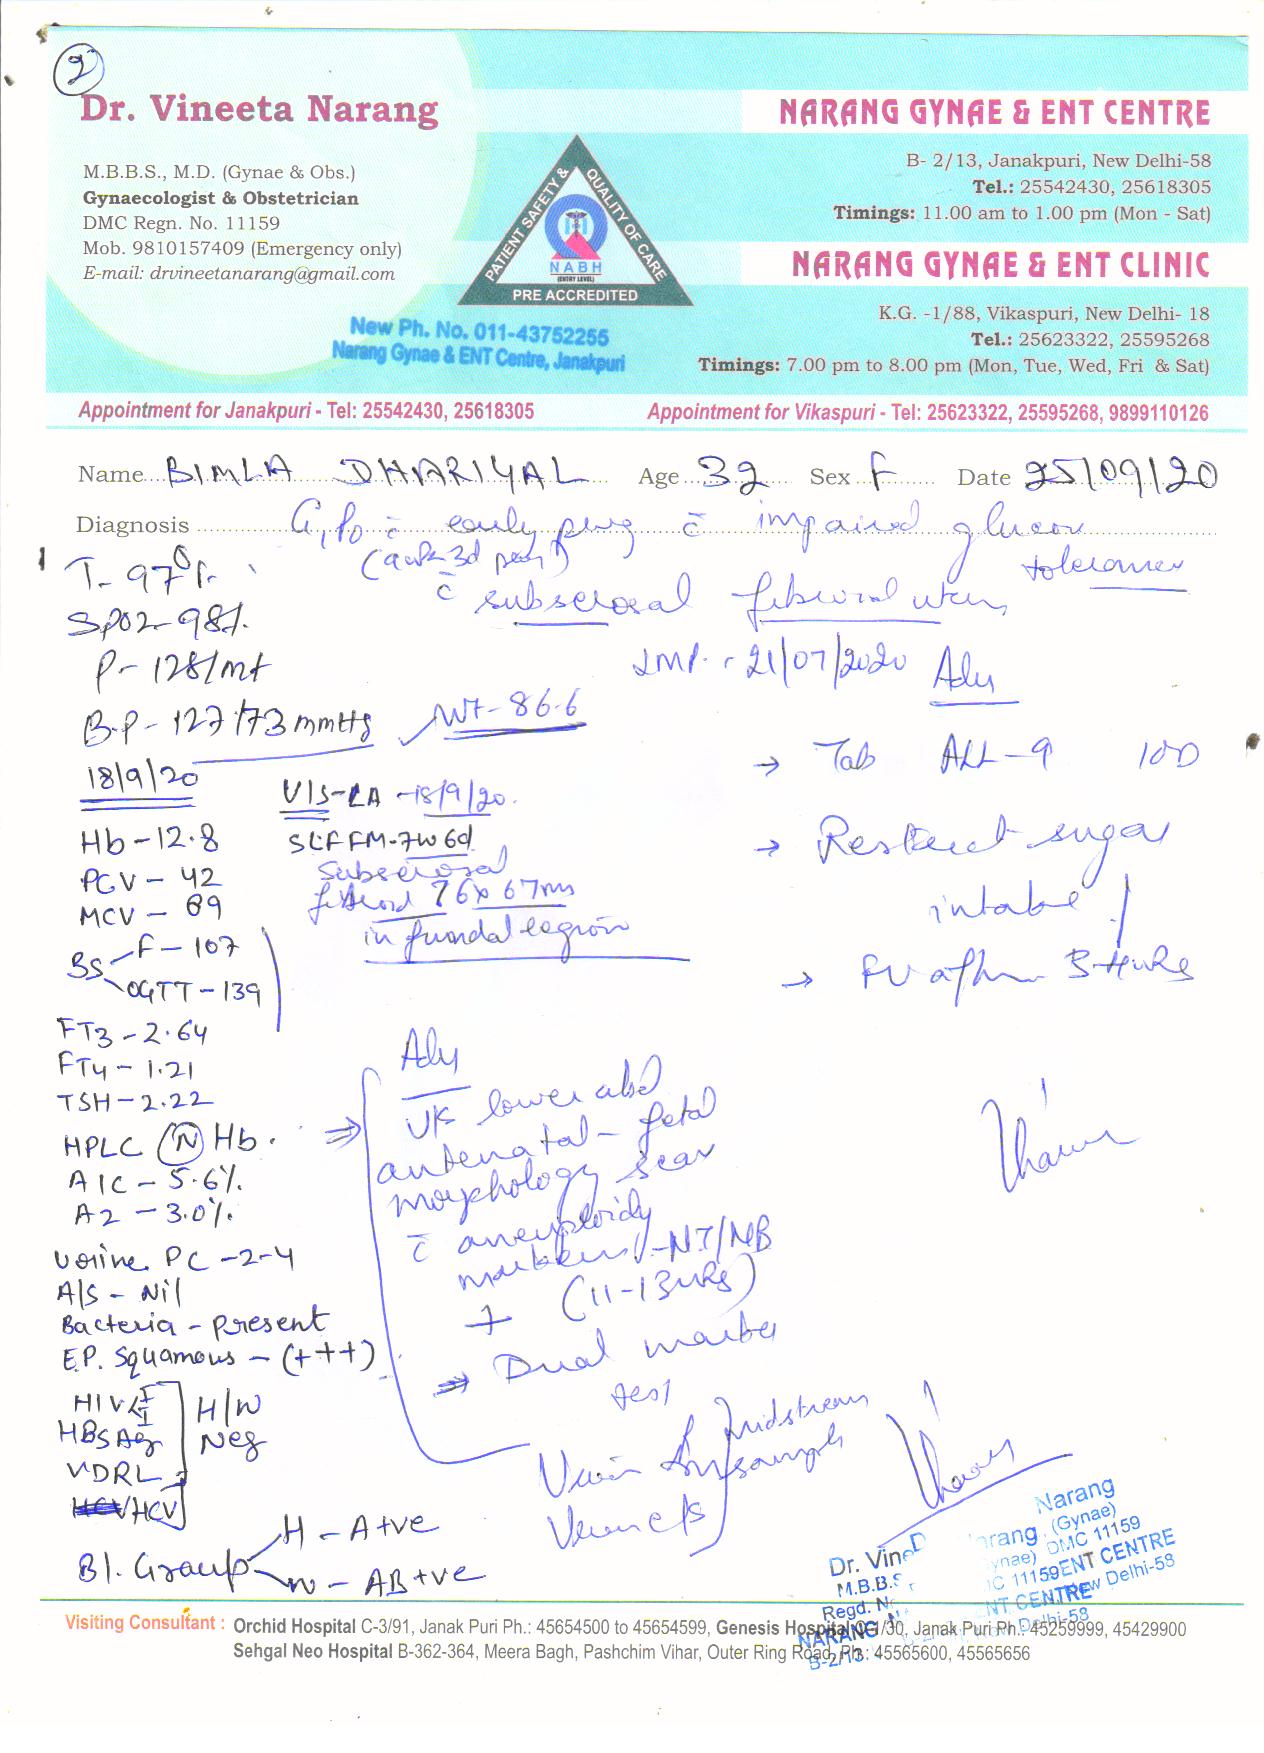 2
Dr. Vineeta Narang
M.B.B.S., M.D. (Gynae & Obs.)
Gynaecologist & Obstetrician
DMC Regn. No. 11159
Mob. 9810157409 (Emergency only)
E-mail: drvineetanarang@gmail.com
PATIENT SAFETY & QUALITY OF CARE
NABH
(ENTRY LEVEL)
PRE ACCREDITED
New Ph. No. 011-43752255
Narang Gynae & ENT Centre, Janakpuri
NARANG GYNAE & ENT CENTRE
B- 2/13, Janakpuri, New Delhi-58
Tel.: 25542430, 25618305
Timings: 11.00 am to 1.00 pm (Mon - Sat)
NARANG GYNAE & ENT CLINIC
K.G. -1/88, Vikaspuri, New Delhi- 18
Tel.: 25623322, 25595268
Timings: 7.00 pm to 8.00 pm (Mon, Tue, Wed, Fri & Sat)
Appointment for Janakpuri - Tel: 25542430, 25618305
Appointment for Vikaspuri - Tel: 25623322, 25595268, 9899110126
Name BIMLA DHARIYAL Age 32 Sex F Date 25/09/20
Diagnosis G1P0 c̄ early preg c̄ impaired glucose
tolerance
c̄ subserosal fibroid uterus
LMP - 21/07/2020
T - 97°F
SPO2 - 98%
P - 128/mt
B.P - 127/73 mmHg
Wt - 86.6
18/9/20
Hb - 12.8
PCV - 42
MCV - 89
BS F - 107
OGTT - 139
FT3 - 2.64
FT4 - 1.21
TSH - 2.22
HPLC (N) Hb.
A1C - 5.6%
A2 - 3.0%
Urine PC - 2-4
A/S - Nil
Bacteria - present
E.P. Squamous - (+++)
HIV I II
HBsAg
VDRL
HCV
H/W
Neg
Bl. Group H - A+ve
W - AB+ve
U/S-LA - 18/9/20.
SLF FM - 7W6d
Subserosal
fibroid 76 x 67mm
in fundal region
Adv
→ Tab ALL-9 10D
→ Restrict sugar
intake
→ after 3
Adv
U/S lower abd
antenatal - fetal
morphology scan
c̄ aneuploidy
markers - NT/NB
(11-13wks)
+
⇒ Dual marker
test
Urine
midstream
sample
Dr. Vin
M.B.B.S
Regd. N
NARANG
B-2/13
Narang
(Gynae)
DMC 11159
ENT CENTRE
New Delhi-58
Visiting Consultant : Orchid Hospital C-3/91, Janak Puri Ph.: 45654500 to 45654599, Genesis Hospital /30, Janak Puri Ph.: 45259999, 45429900
Sehgal Neo Hospital B-362-364, Meera Bagh, Pashchim Vihar, Outer Ring Road, Ph.: 45565600, 45565656